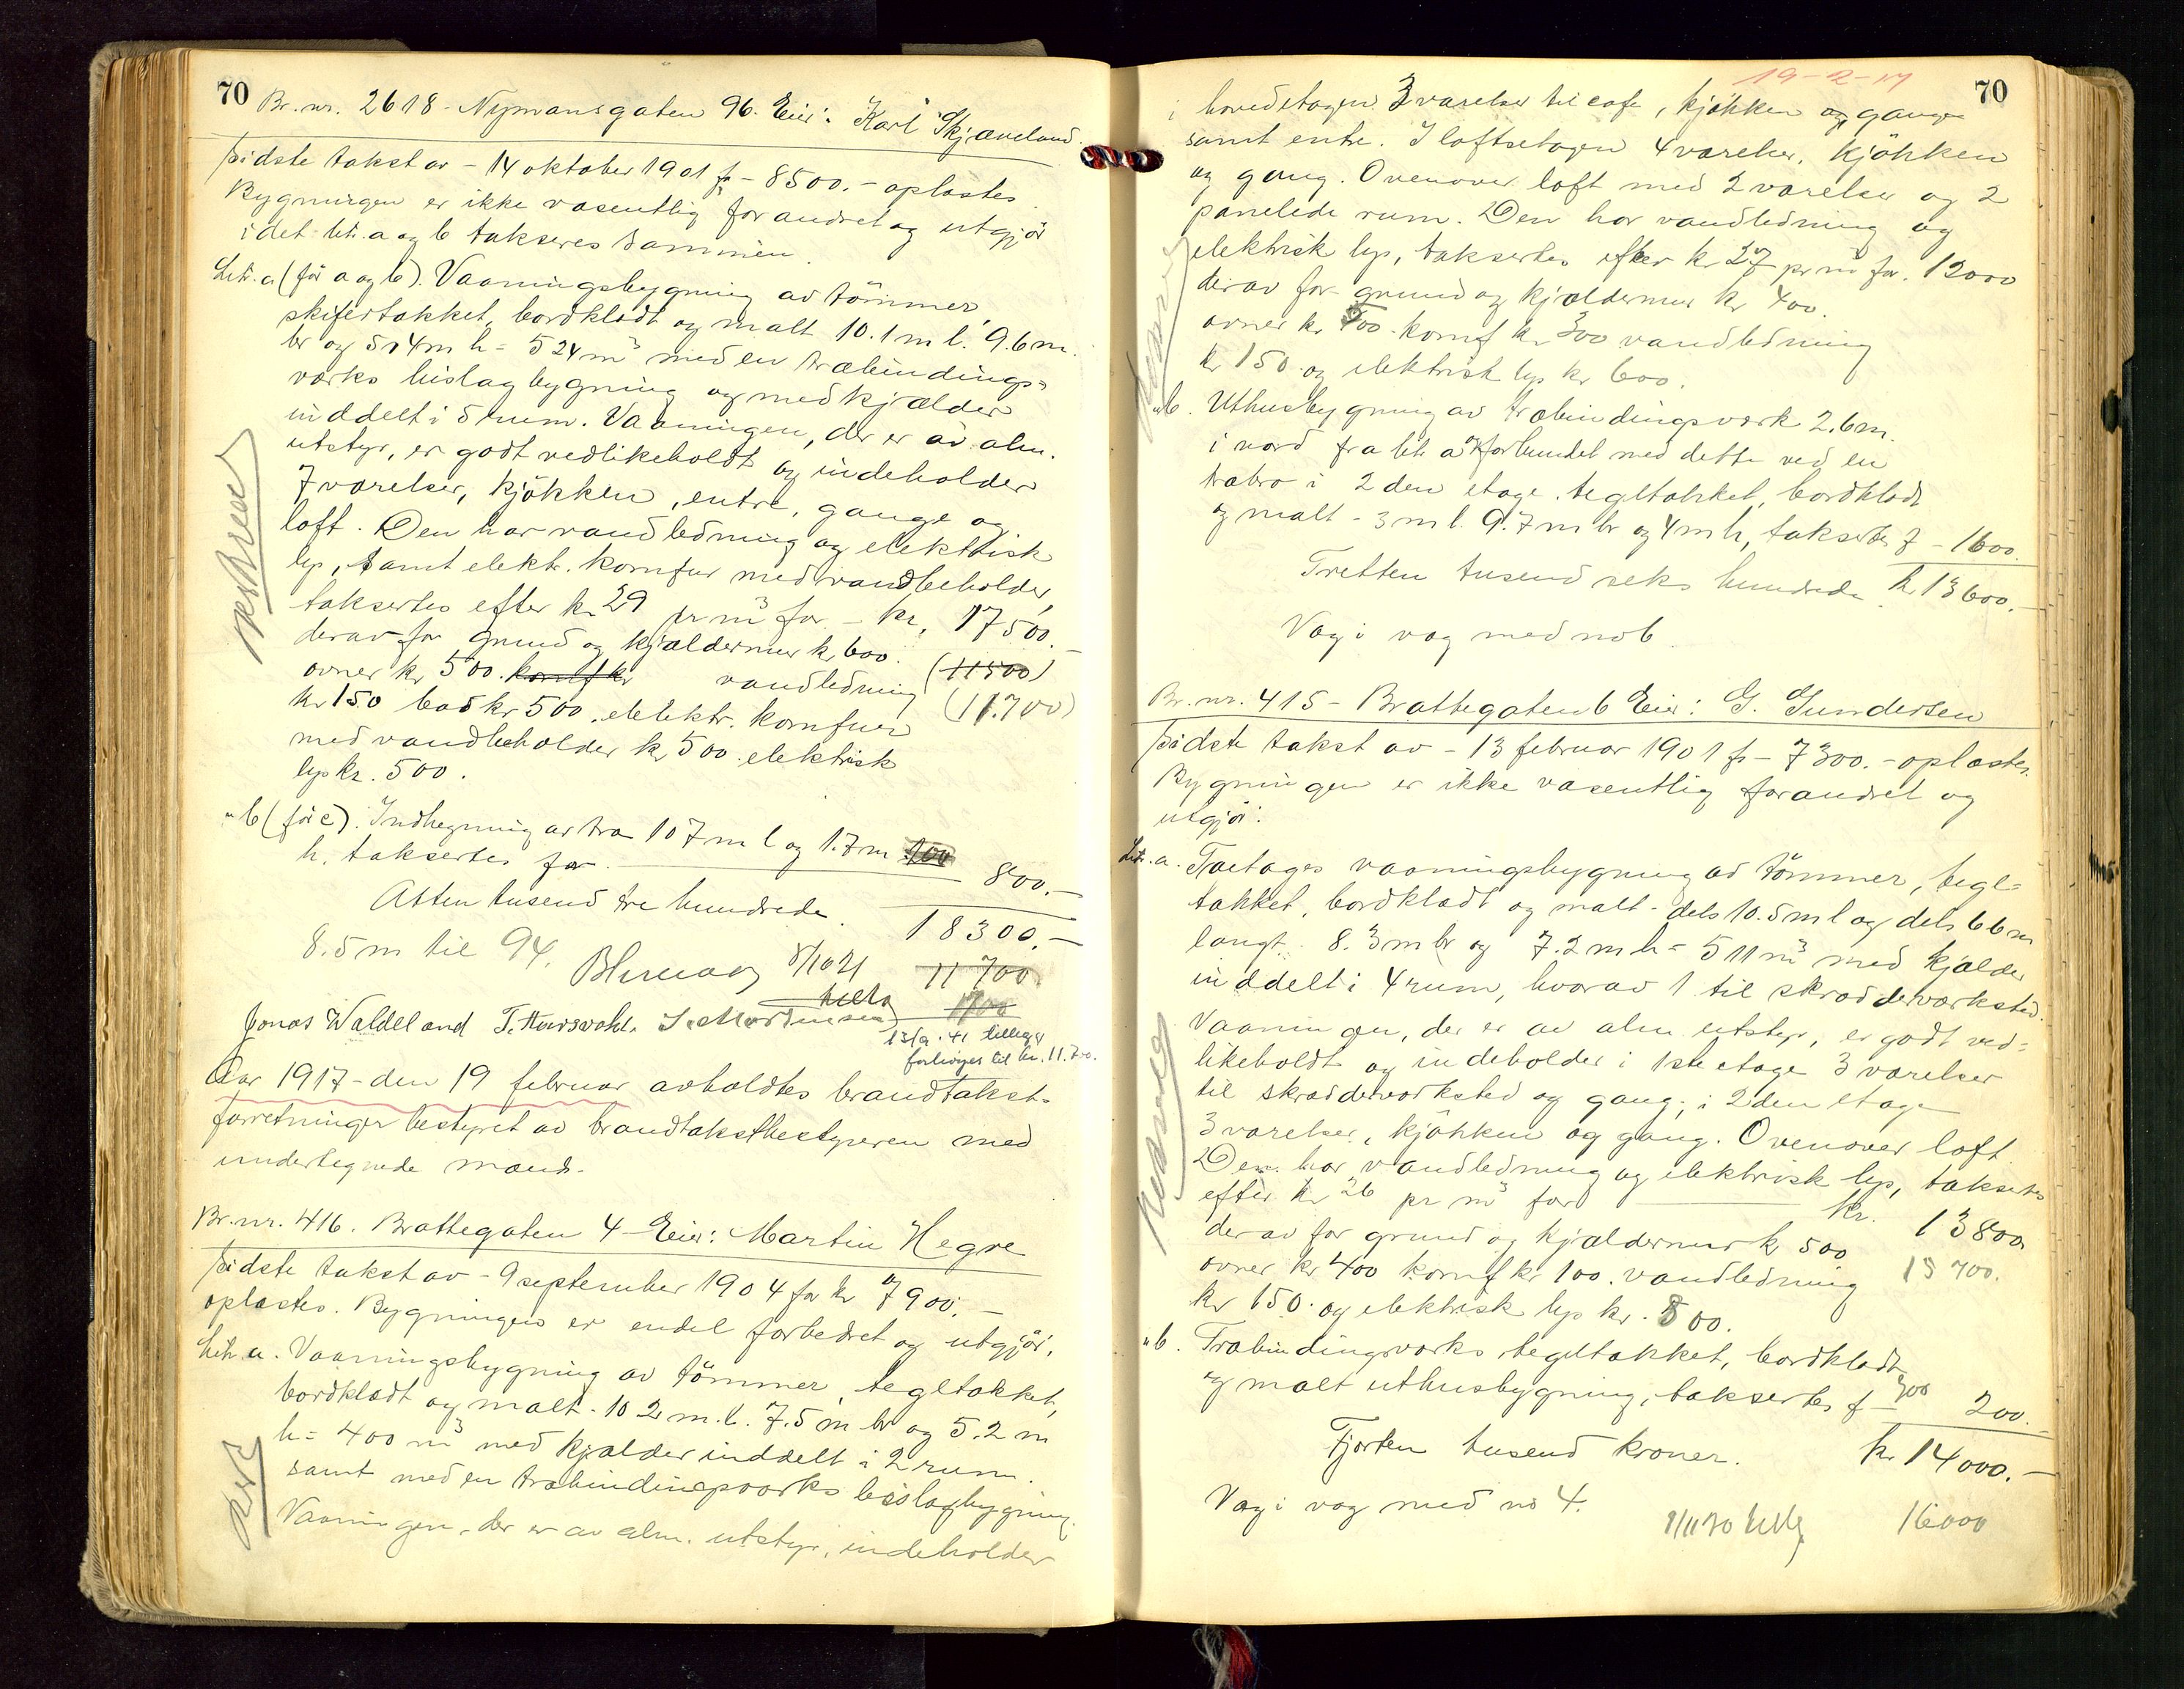 70
Br. nr. 2618 - Nymansgaten 96. Eier: Karl Skjæveland.
Sidste takst av - 14 oktober 1901 fr - 8500. - oplæstes.
Bygningen er ikke væsentlig forandret og utgjør
idet litr. a og b takseres sammen.
Litr. a (før a og b). Vaaningsbygning av tømmer,
skifertækket, bordklædt og malt 10.1 m l. 9.6 m.
br og 5.4 m h = 524 m³ med en træbindings-
værks bislagbygning og med kjælder
inddelt i 5 rum. Vaaningen, der er av alm.
utstyr, er godt vedlikeholdt og indeholder
7 værelser, kjøkken, entre, gange og
loft. Den har vandledning og elektrisk
lys, samt elekt. komfur med vandbeholder,
taksertes efter kr 29 pr m³ for - kr. 17500.-
derav for grund og kjældermur kr 600. (11500)
ovner kr 500. komf kr vandledning (11.700)
kr 150 bad kr 500. elektr. komfur
med vandbeholder kr 500. elektrisk
lys kr. 500.
" b (før c). Indhegning av træ 107 m l og 1.7 m
h. taksertes for 800.-
Atten tusend tre hundrede. 18300.-
8.5 m til 94. 8/10 21 11700
Jonas Waldeland
13/9 - 41 tillegg
forhøiges til kr. 11.700.
Aar 1917 - den 19 februar avholdtes brandtakst-
forretninger bestyret av brandtakstbestyreren med
undertegnede mænd.
Br. nr. 416. Brattegaten 4 - Eier: Martin Hegre
Sidste takst av - 9 september 1904 for kr 7900.-
oplæstes. Bygningen er endel forbedret og utgjør.
Litr. a. Vaaningsbygning av tømmer, tegltækket,
bordklædt og malt - 10 2 m. l. 7.5 m br og 5.2 m
h = 400 m³ med kjælder inddelt i 2 rum.
samt med en træbindingsværks bislagbygning.
Vaaningen, der er av alm. utstyr, indeholder
19-2-17
70
i hovedetagen 3 værelser til cafe, kjøkken og gange
samt entre. I loftsetagen 4 værelser, kjøkken
og gang. Ovenover loft med 2 værelser og 2
panelede rum. Den har vandledning og
elektrisk lys, taksertes efter kr 27 pr m³ for. 12000
derav for grund og kjældermur kr 400.
ovner kr 500 - komf kr 300 vandledning
kr 150. og elektrisk lys kr 600.
" b. Uthusbygning av træbindingsværk 2.6 m.
i nord fra litr. a og forbundet med dette ved en
træbro i 2den etage. tegltækket, bordklædt
og malt - 3 m l. 9.7 m br og 4 m h, taksertes f - 1600.
Tretten tusend seks hundrede kr 13600.-
Væg i væg med no 6.
Br. nr. 415 - Brattegaten 6 Eier: G. Gundersen
Sidste takst av - 13 februar 1901 fr - 7300. - oplæstes.
Bygningen er ikke væsentlig forandret og
utgjør:
Litr. a. Toetages vaaningsbygning av tømmer, tegl-
tækket, bordklædt og malt - dels 10.5 m l og dels 6 6 m
langt. 8.3 m br og 7.2 m h = 511 m³ med kjælder
inddelt i 4 rum, hvorav 1 til skrædderværksted.
Vaaningen, der er av alm utstyr, er godt ved-
likeholdt og indeholder i 1ste etage 3 værelser
til skrædderværksted og gang; i 2den etage
3 værelser, kjøkken og gang. Ovenover loft.
Den har vandledning og elektrisk lys, taksertes
efter kr 26 pr m³ for kr. 13800
derav for grund og kjældermur kr 500
ovner kr 400 komf kr 100. vandledning 15700.
kr 150. og elektrisk lys kr. 800.
" b. Træbindingsværks tegltækket, bordklædt
og malt uthusbygning, taksertes f - 300 200.
Fjorten tusend kroner. kr 14000.-
Væg i væg med no 4.
16000